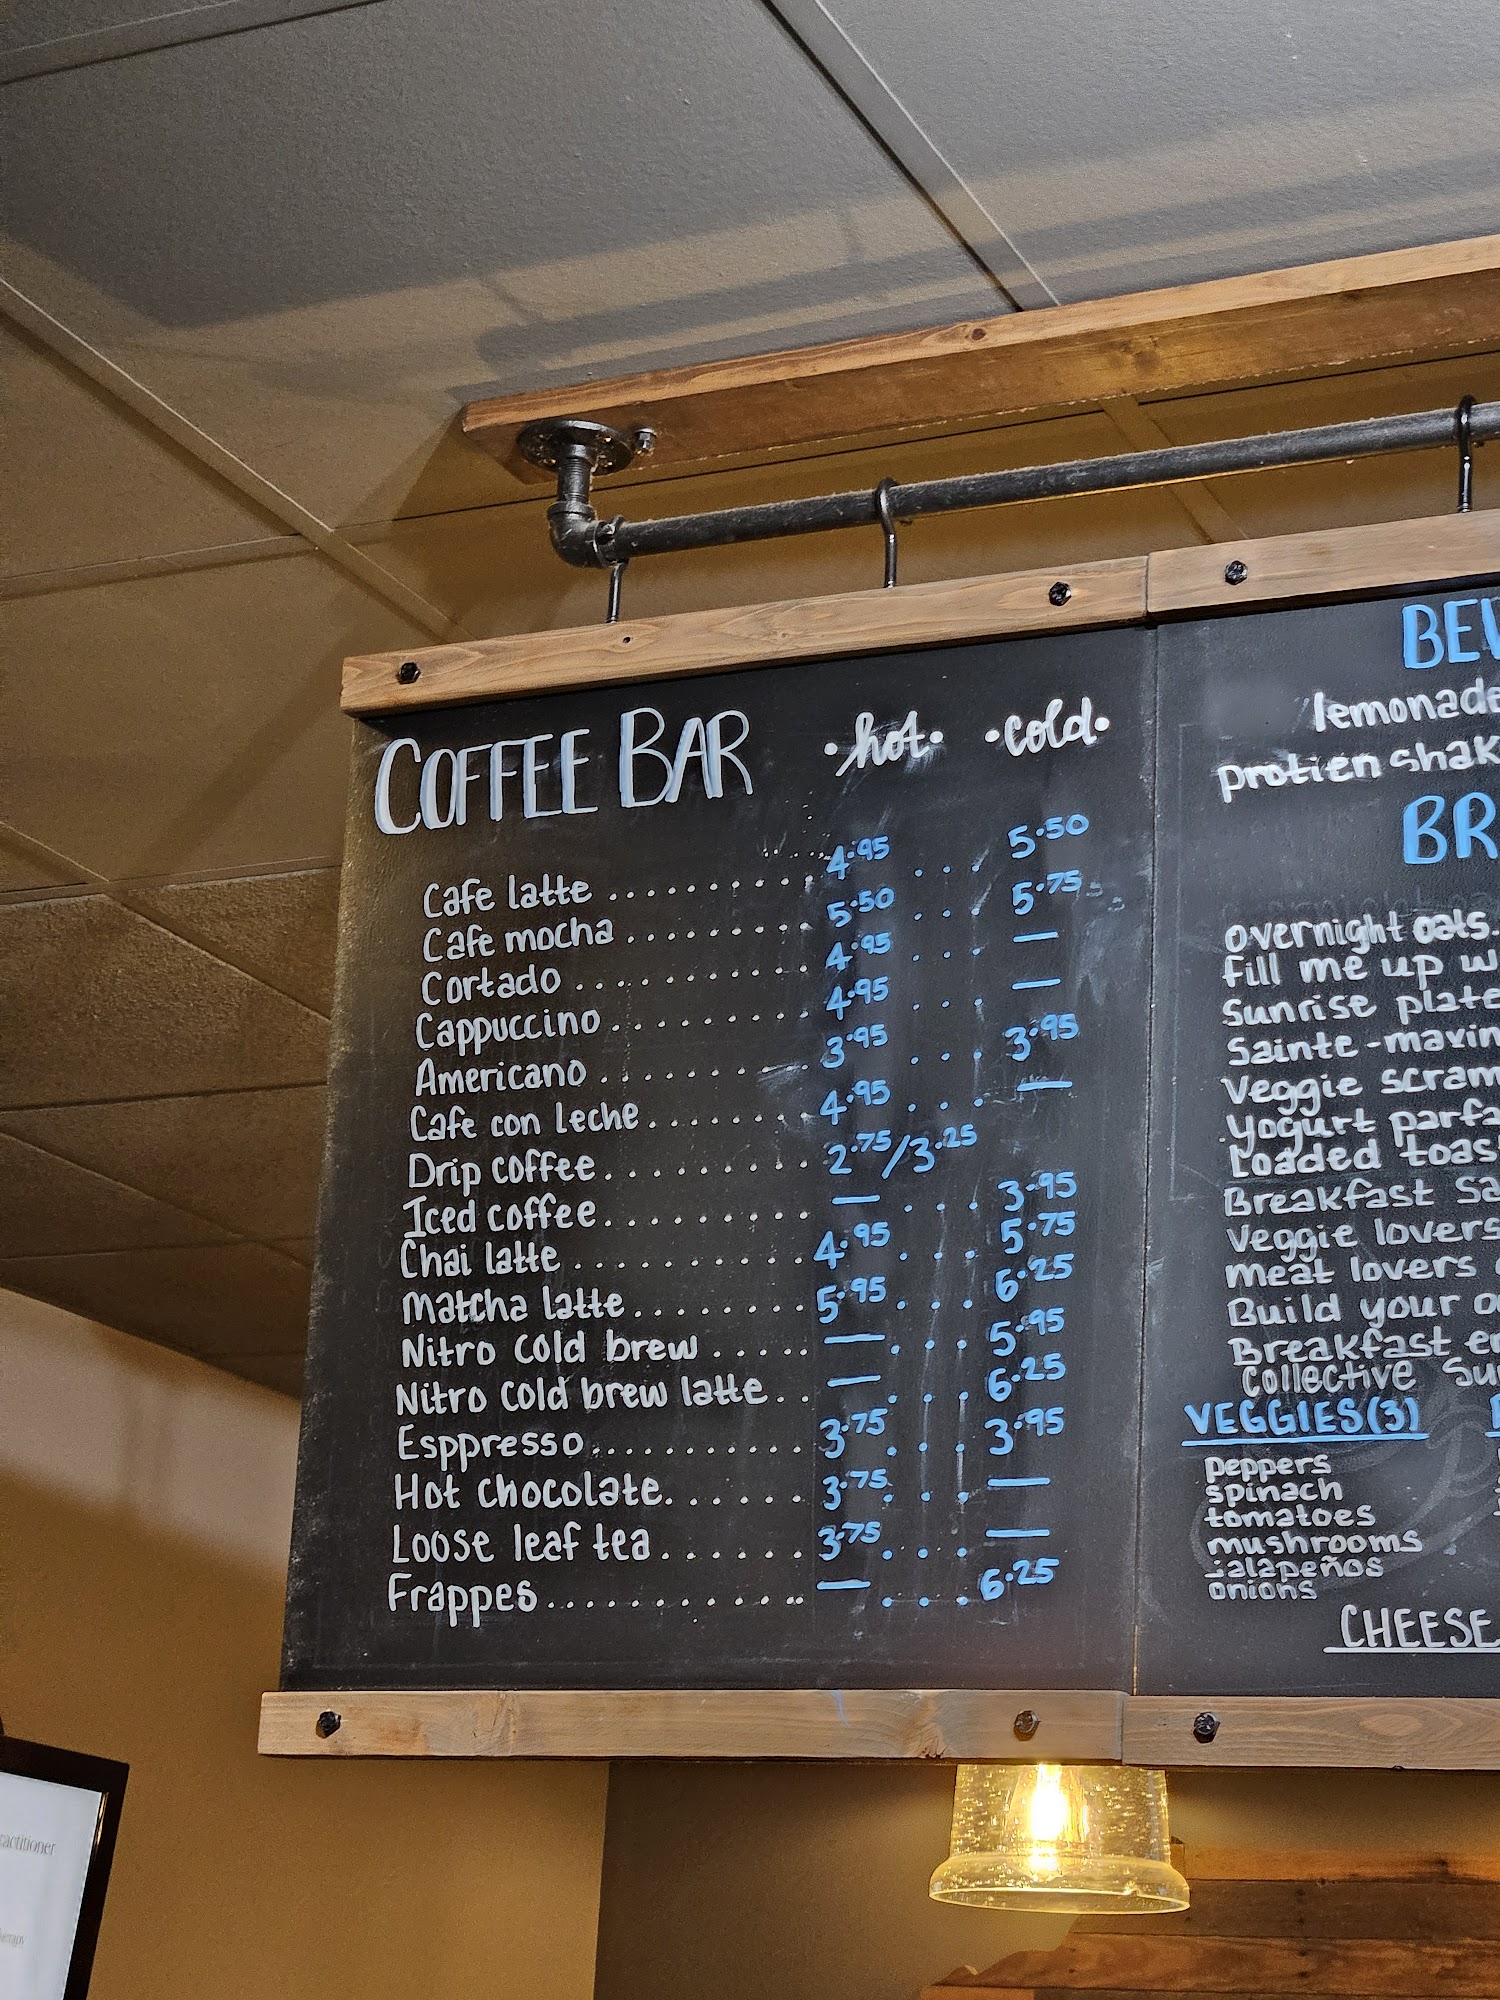 COFFEE BAR •hot• •cold•
Cafe latte .......... 4.95 ... 5.50
Cafe mocha ......... 5.50 ... 5.75
Cortado .......... 4.95 ... —
Cappuccino ......... 4.95 ... —
Americano ......... 3.95 ... 3.95
Cafe con leche ....... 4.95 ... —
Drip coffee ......... 2.75/3.25
Iced coffee ......... — ... 3.95
Chai latte .......... 4.95 ... 5.75
Matcha latte ........ 5.95 ... 6.25
Nitro cold brew ..... — ... 5.95
Nitro cold brew latte .. — ... 6.25
Esppresso .......... 3.75 ... 3.95
Hot chocolate ...... 3.75 ... —
Loose leaf tea ....... 3.75 ... —
Frappes ........... — ... 6.25
BEV
lemonade
protien shak
BR
overnight oats.
fill me up w
Sunrise plate
Sainte-maxin
Veggie scram
Yogurt parfa
Loaded toas
Breakfast Sa
Veggie lovers
meat lovers
Build your o
Breakfast en
Collective su
VEGGIES(3)
peppers
spinach
tomatoes
mushrooms
jalapeños
onions
CHEESE
ractitioner